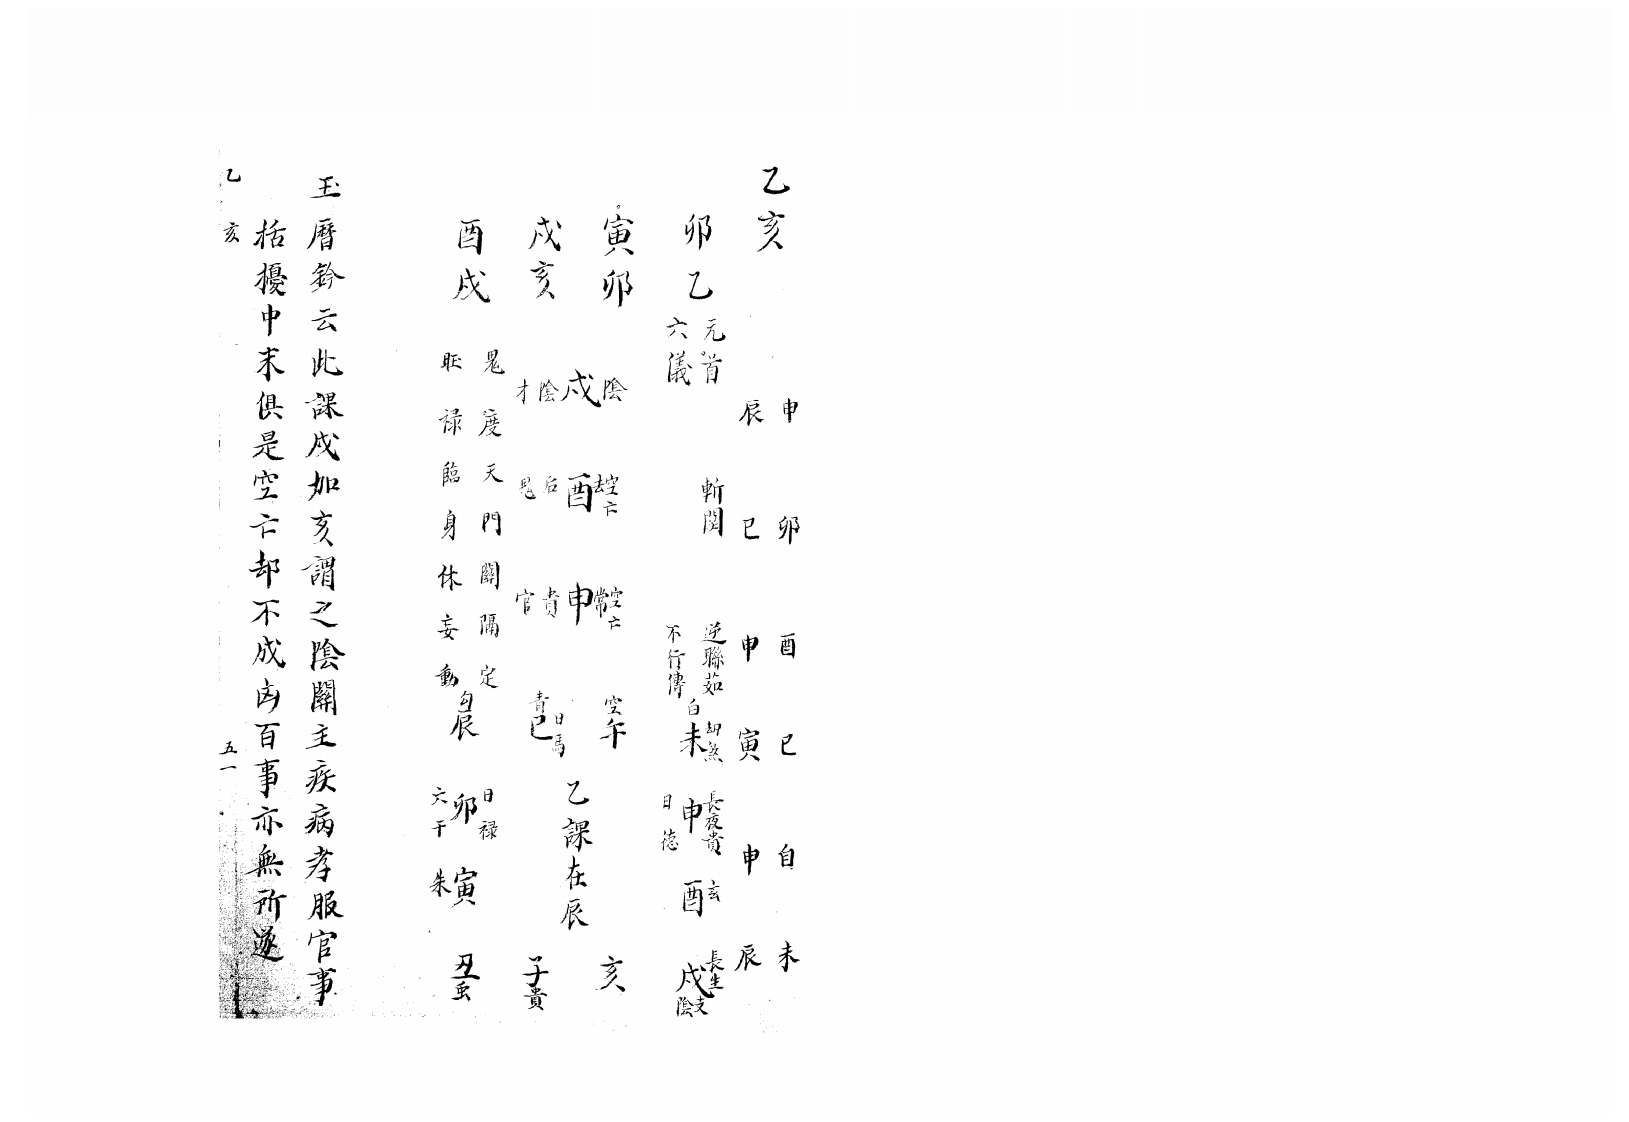 乙亥
申 卯 酉 巳 自 未
辰 巳 申 寅 申 辰
卯乙
元首 斬関 逆聯茹
六儀 不行傳
白未 劫煞
申 長夜貴 日德
酉 玄
戌 長生 支陰
寅卯
陰 戌 陰 才
空亡 去 酉 后 鬼
空亡 常 申 貴 官
空午
亥
乙課在辰
戌亥
青巳 日馬
子貴
酉戌
鬼度天門關隔定
旺禄臨身休妄動
勾辰
日禄 卯 六干
寅 朱
丑
玉曆鈐云此課戌加亥謂之陰關主疾病孝服官事
括擾中末俱是空亡却不成凶百事亦無所遂
乙亥 五一